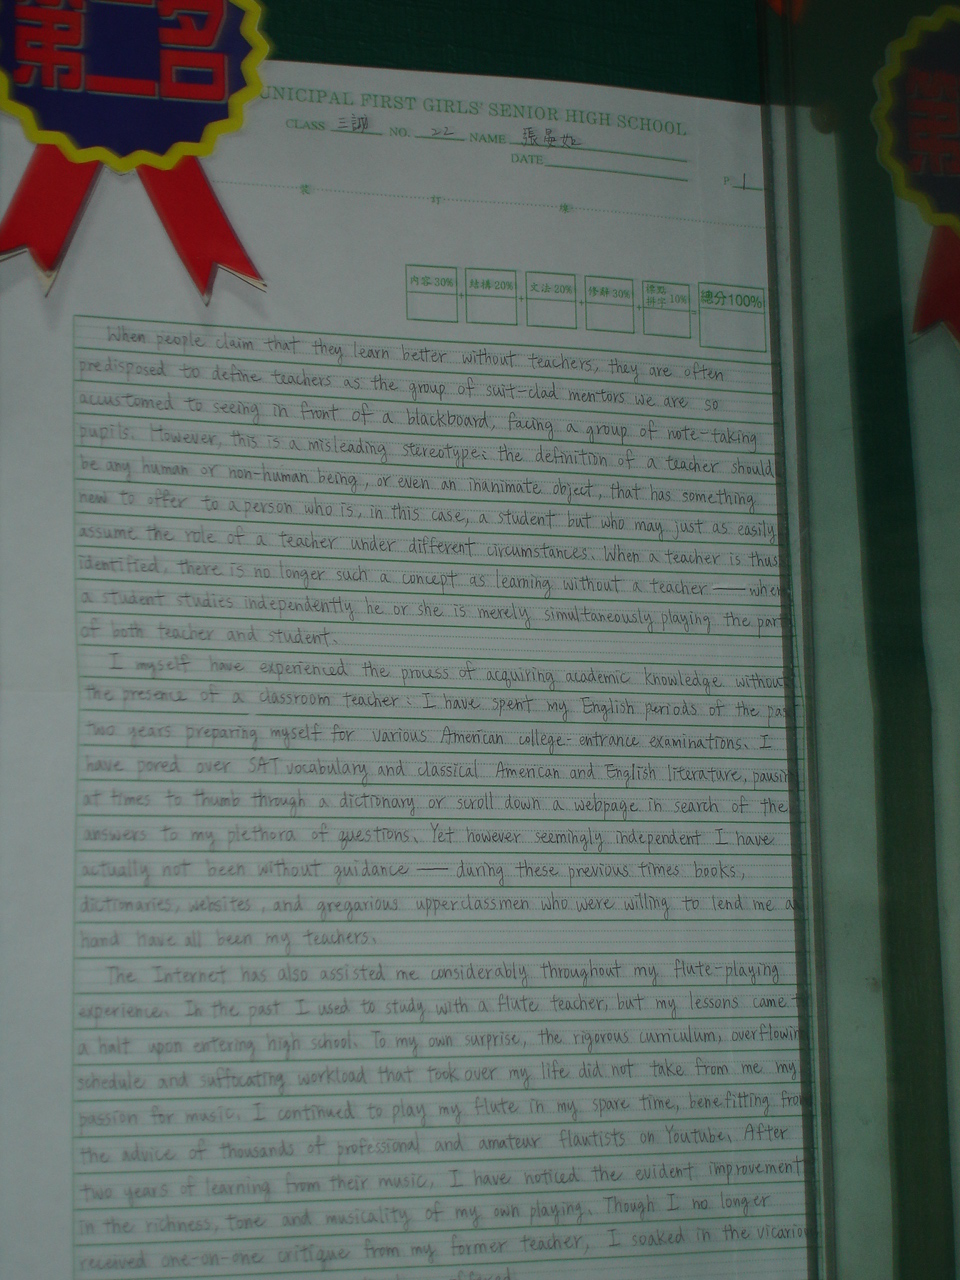 第一名
UNICIPAL FIRST GIRLS' SENIOR HIGH SCHOOL
CLASS 三誠 NO. 22 NAME 張曼
DATE
P. 1
裝 訂 線
內容30% + 結構20% + 文法20% + 修辭30% + 標點拼字10% = 總分100%
When people claim that they learn better without teachers, they are often
predisposed to define teachers as the group of suit-clad mentors we are so
accustomed to seeing in front of a blackboard, facing a group of note-taking
pupils. However, this is a misleading stereotype: the definition of a teacher should
be any human or non-human being, or even an inanimate object, that has something
new to offer to a person who is, in this case, a student but who may just as easily
assume the role of a teacher under different circumstances. When a teacher is thus
identified, there is no longer such a concept as learning without a teacher — when
a student studies independently he or she is merely simultaneously playing the part
of both teacher and student.
I myself have experienced the process of acquiring academic knowledge without
the presence of a classroom teacher: I have spent my English periods of the past
two years preparing myself for various American college-entrance examinations. I
have pored over SAT vocabulary and classical American and English literature, pausin
at times to thumb through a dictionary or scroll down a webpage in search of the
answers to my plethora of questions. Yet however seemingly independent I have
actually not been without guidance — during these previous times books,
dictionaries, websites, and gregarious upperclassmen who were willing to lend me a
hand have all been my teachers.
The Internet has also assisted me considerably throughout my flute-playing
experience. In the past I used to study with a flute teacher, but my lessons came t
a halt upon entering high school. To my own surprise, the rigorous curriculum, overflowin
schedule and suffocating workload that took over my life did not take from me my
passion for music. I continued to play my flute in my spare time, benefitting from
the advice of thousands of professional and amateur flautists on Youtube. After
two years of learning from their music, I have noticed the evident improvement
in the richness, tone and musicality of my own playing. Though I no longer
received one-on-one critique from my former teacher, I soaked in the vicario
offered